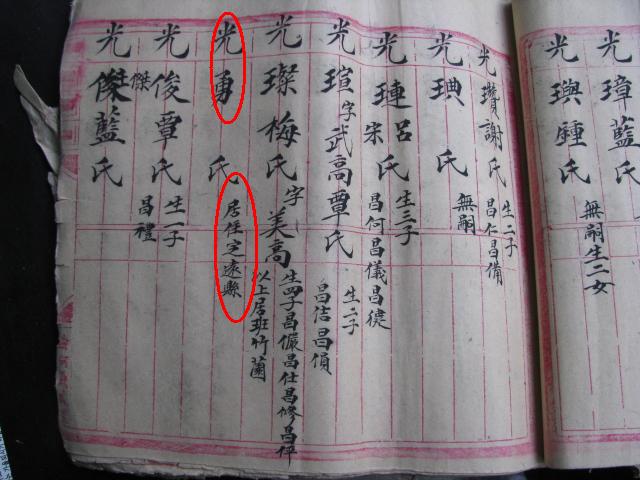 光璋藍氏
光璵鍾氏 無嗣生二女
光瓚謝氏 生二子
昌仁昌備
光琠 氏 無嗣
光璉呂氏 生三子
宋氏 昌何昌儀昌
光瑄字武高覃氏 生二子
昌佶昌偵
光璨梅氏字美高 生四子昌儼昌仕昌修昌伴
以上居班竹薗
光勇 氏 居住定遠縣
光俊覃氏 生一子
傑 昌禮
光傑藍氏